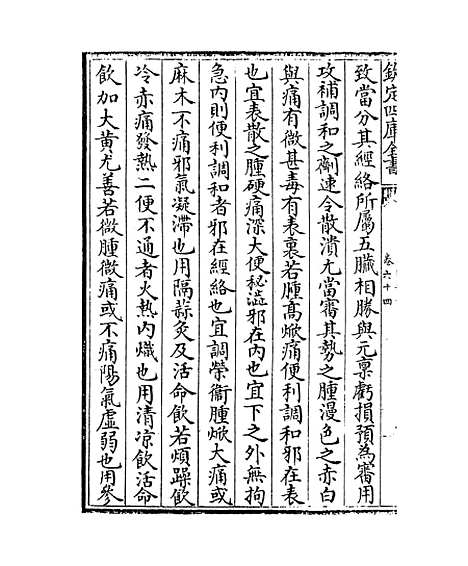 欽定四庫全書
卷六十四
致當分其經絡所屬五臟相勝與元稟虧損預為審用
攻補調和之劑速令散潰尤當審其勢之腫漫色之赤白
與痛有微甚毒有表裏若腫髙焮痛便利調和邪在表
也宜表散之腫硬痛深大便秘澁邪在内也宜下之外無拘
急内則便利調和者邪在經絡也宜調榮衞腫焮大痛或
麻木不痛邪氣凝滯也用隔蒜灸及活命飲若煩躁飲
冷赤痛發熱二便不通者火熱内熾也用清凉飲活命
飲加大黄尤善若微腫微痛或不痛陽氣虛弱也用參